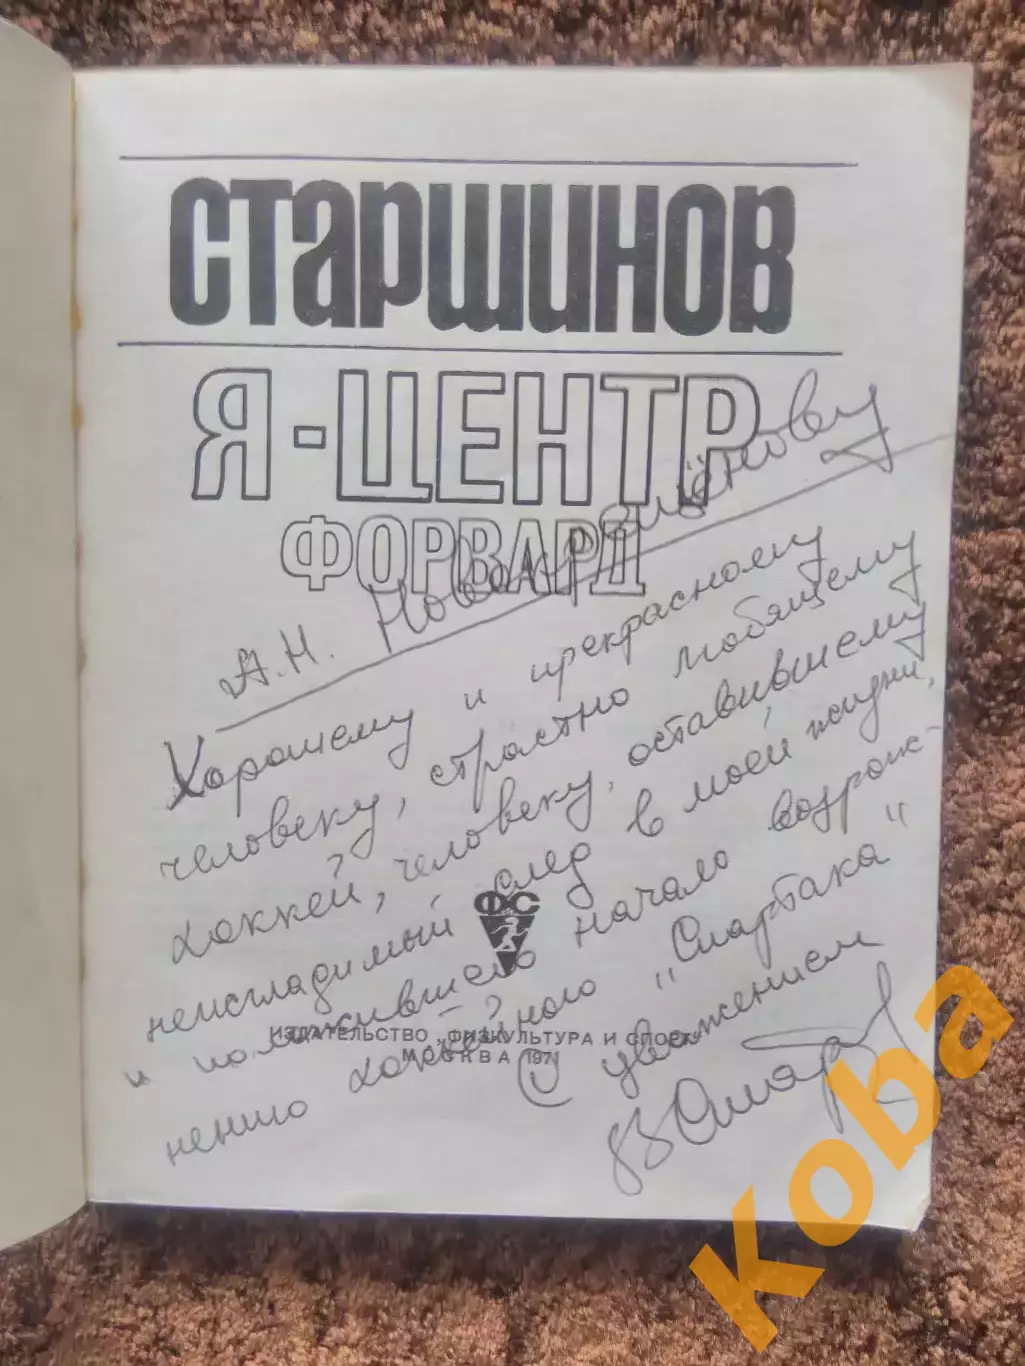 СТАРШИНОВ
Я-ЦЕНТР
ФОРВАРД
А.Н. Новокрещёнову
Хорошему и прекрасному
человеку, страстно любящему
хоккей, человеку, оставившему
неизгладимый след в моей жизни,
и положившего начало возрож-
нению хоккейного "Спартака"
С уважением
В Стар
ФС
ИЗДАТЕЛЬСТВО „ФИЗКУЛЬТУРА И СПОРТ"
МОСКВА 1971
Koba